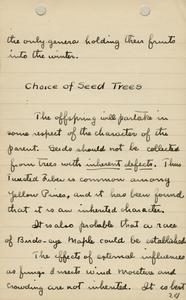 the only genera holding their fruits
into the winter.
Choice of Seed Trees
The offspring will partake in
some respect of the character of the
parent. Seeds should not be collected
from trees with inherent defects. Thus
Twisted Fiber is common among
Yellow Pines, and it has been found
that it is an inherited character.
It is also probable that a race
of Birds-eye Maple could be established
The effects of external influences
as fungi insects wind moisture and
crowding are not inherited. It is best